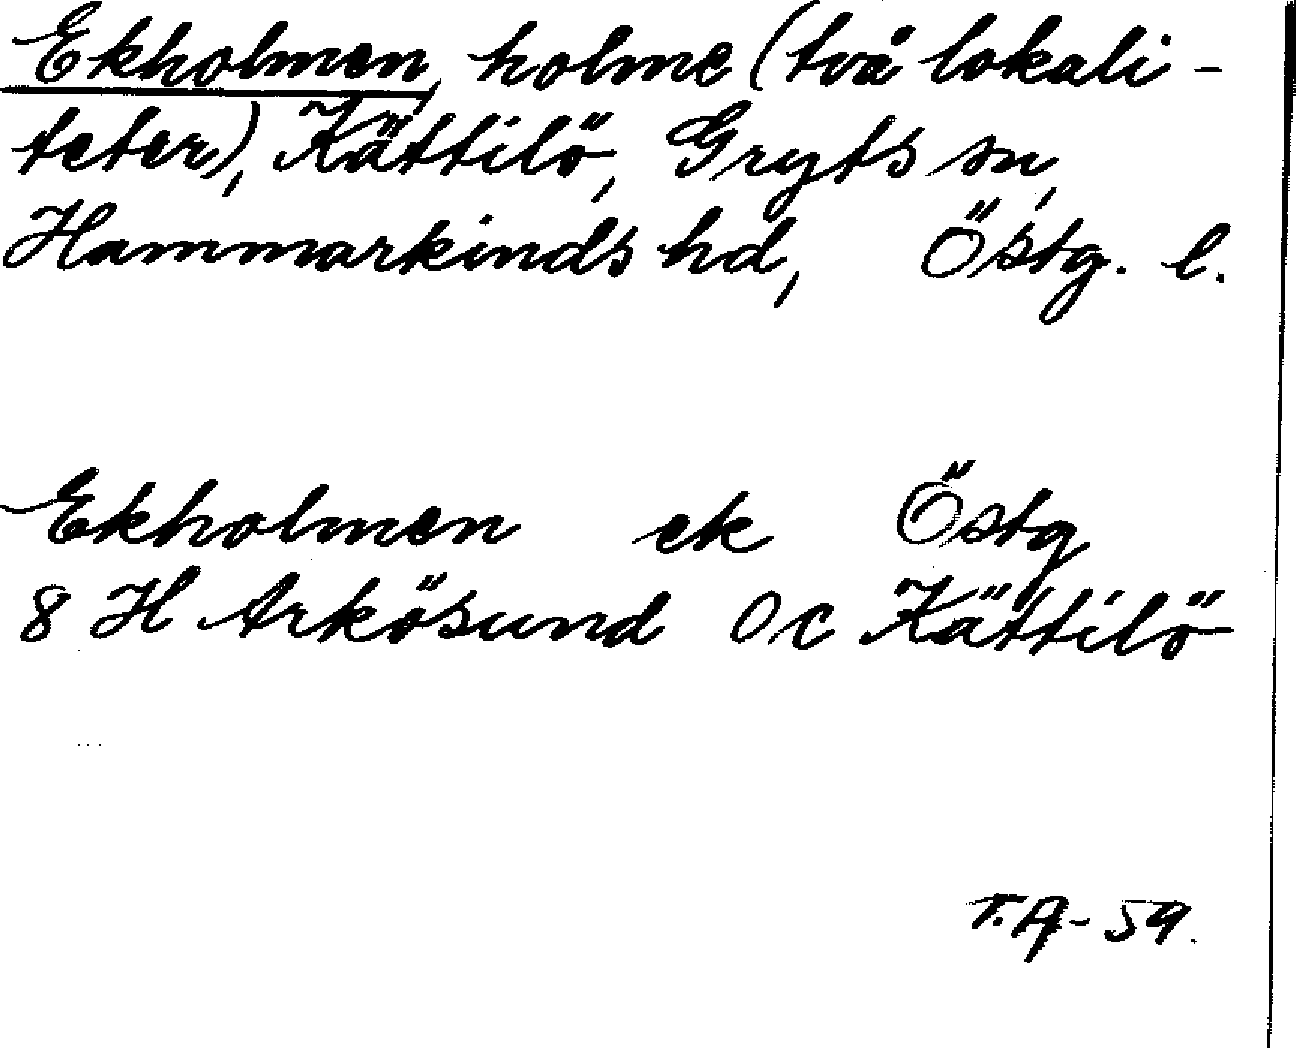 Ekholmen, holme (två lokali-
teter), Kättilö, Gryts sn,
Hammarkinds hd, Östg. l.
Ekholmen ek Östg
8 H Arkösund 0 c Kättilö
T.A-59.